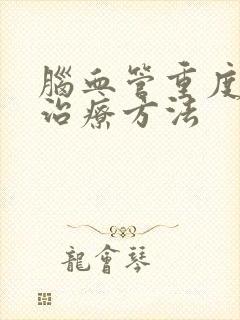 腦血管重度
治療方法
龍會琴